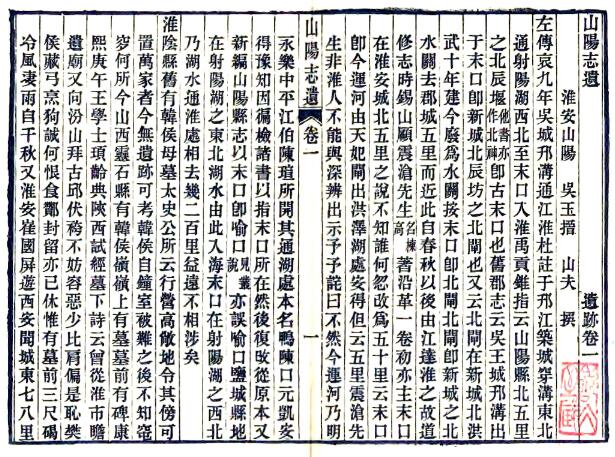 山陽志遺 遺跡卷一
淮安山陽 吳玉搢 山夫 撰
左傳哀九年吳城邗溝通江淮杜註于邗江築城穿溝東北
通射陽湖西北至末口入淮禹貢錐指云山陽縣北五里
之北辰堰他書亦作北神即古末口也舊郡志云吳王城邗溝出
于末口即新城北辰坊之北閘也又云北閘在新城北洪
武十年建今廢為水關按末口即北閘北閘即新城之北
水關去郡城五里而近此自春秋以後由江達淮之故道
修志時錫山顧震滄先生名棟高著沿革一卷初亦主末口
在淮安城北五里之說不知誰何忽改為五十里云末口
即今運河由天妃閘出洪澤湖處安得但云五里震滄先
生非淮人不能與深辨出示予予詫曰不然今運河乃明
山陽志遺 卷一 一
永樂中平江伯陳瑄所開其通湖處本名鴨陳口元凱安
得豫知因徧檢諸書以指末口所在然後復改從原本又
新編山陽縣志以末口即喻口見叢說亦誤喻口鹽城縣地
在射陽湖之東北湖水由此入海末口在射陽湖之西北
乃湖水通淮處相去幾二百里益遠不相涉矣
淮陰縣舊有韓侯母墓太史公所云行營高敞地令其傍可
置萬家者今無遺跡可考韓侯自鐘室被難之後不知窀
穸何所今山西靈石縣有韓侯嶺嶺上有墓墓前有碑康
熙庚午王學士頊齡典陝西試經墓下詩云曾從淮市瞻
遺廟又向汾山拜古邱伏袴不妨容惡少比肩偏是恥樊
侯藏弓烹狗誠何恨食酇封留亦已休惟有墓前三尺碣
冷風凄雨自千秋又淮安崔國屏遊西安聞城東七八里